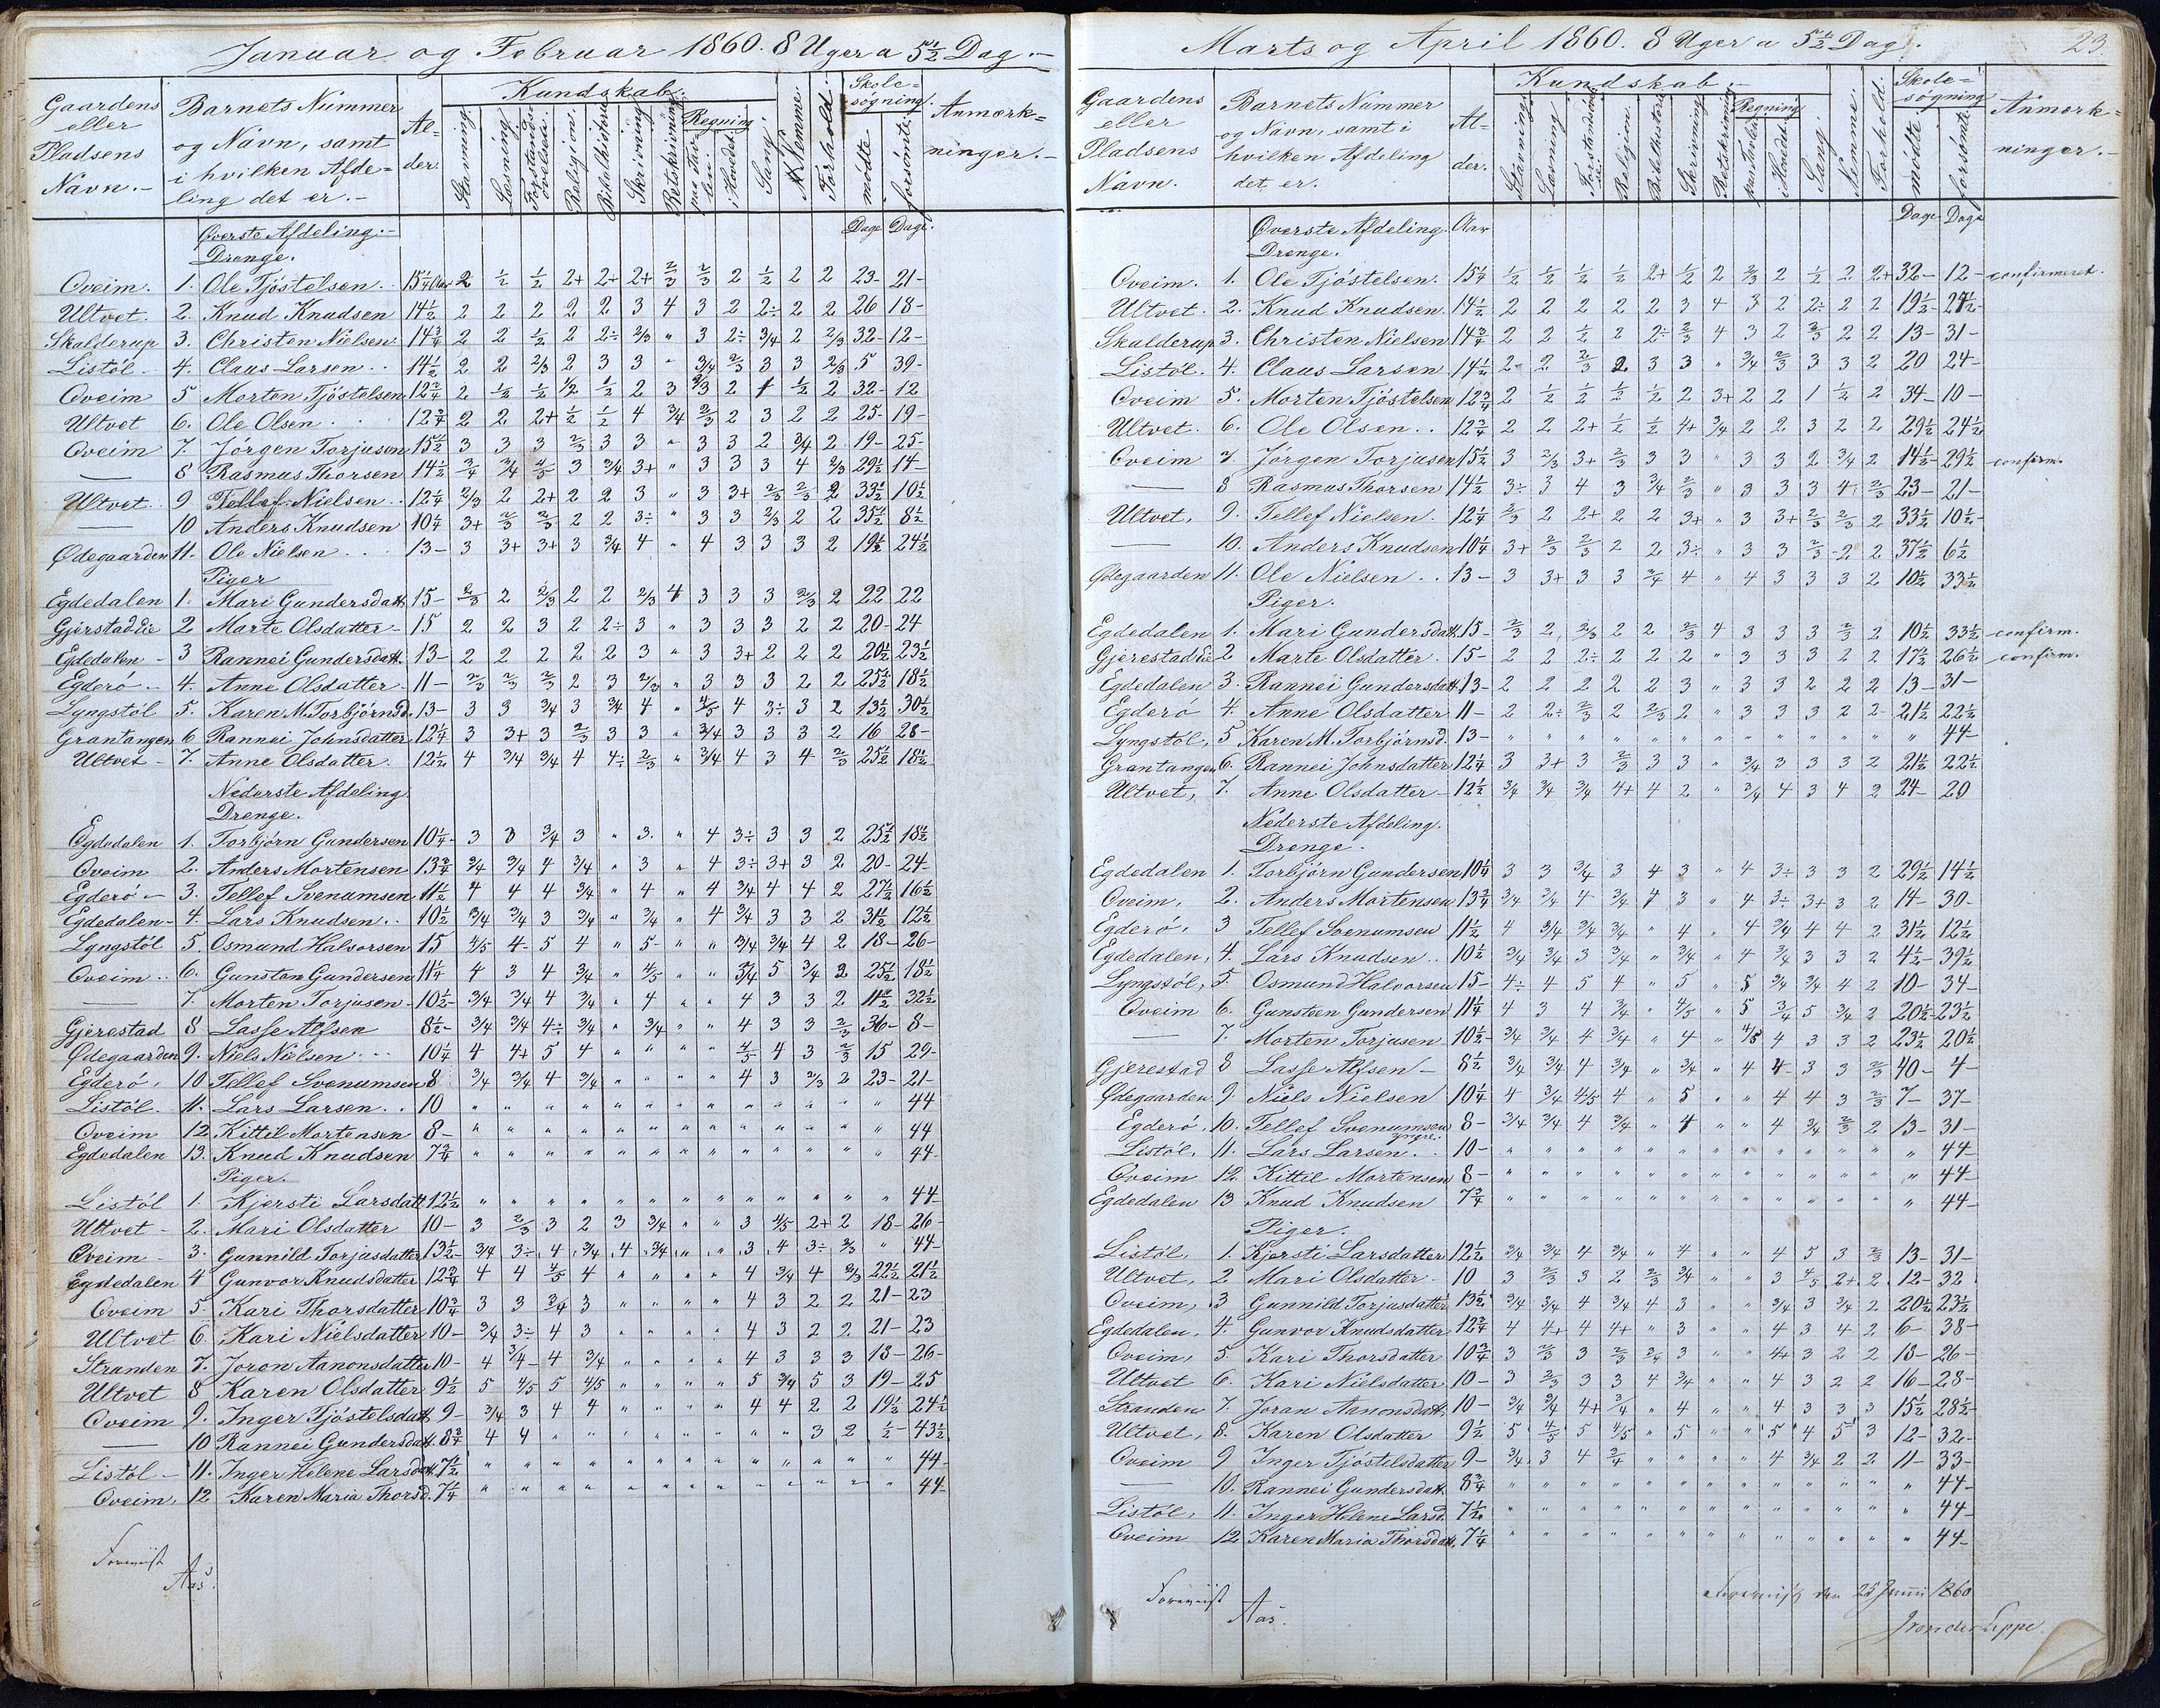 Januar og Februar 1860. 8 Uger a 5½ Dag.-
Gaardens eller Pladsens Navn.-
Barnets Nummer og Navn, samt i hvilken Afdeling det er.-
Alder.
Kundskab.
Stavning. Læsning. Forstandsøvelse. Religion. Bibelhistorie. Skrivning. Retskrivning. Regning paa Tavlen. i Hovedet. Sang. Nemme. Forhold.
Skolesøgning. mødte forsømte.
Anmærkninger.-
Øverste Afdeling.- Dage Dage.
Drenge.
Oveim. 1. Ole Tjöstelsen. 15¼ Aar 2 ½ ½ 2+ 2+ 2+ ⅔ ⅔ 2 ½ 2 2 23- 21-
Ultvet. 2. Knud Knudsen 14½ 2 2 2 2 2 3 4 3 2 2÷ 2 2 26 18-
Skalderup 3. Christen Nielsen 14¾ 2 2 ½ 2 2÷ 2/3 " 3 2÷ 3/4 2 2/3 32- 12-
Listöl- 4. Claus Larsen.. 14½ 2 2 2/3 2 3 3 " 3/4 ⅔ 3 3 2/3 5 39-
Oveim 5 Morten Tjöstelsen 12¾ 2 ½ ½ ½ ½ 2 3 2/3 2 1 ½ 2 32- 12
Ultvet 6. Ole Olsen. 12¾ 2 2 2+ ½ ½ 4 3/4 ⅔ 2 3 2 2 25- 19-
Oveim 7. Jörgen Torjusen 15½ 3 3 3 ⅔ 3 3 " 3 3 2 3/4 2 19- 25-
— 8 Rasmus Thorsen 14½ ¾ 3/4 4/5 3 3/4 3+ " 3 3 3 4 2/3 29½ 14-
Ultvet. 9 Tellef Nielsen.. 12¼ 2/3 2 2+ 2 2 3 " 3 3+ ⅔ ⅔ 2 33½ 10½
— 10 Anders Knudsen 10¼ 3+ ⅔ ⅔ 2 2 3÷ " 3 3 2/3 2 2 35½ 8½
Ødegaarden 11. Ole Nielsen... 13- 3 3+ 3+ 3 3/4 4 " 4 3 3 3 2 19½ 24½
Piger
Egdedalen 1. Mari Gundersdatt. 15- ⅔ 2 2/3 2 2 2/3 4 3 3 3 2/3 2 22 22
Gjerstadeie 2 Marte Olsdatter- 15 2 2 3 2 2÷ 3 " 3 3 3 2 2 20- 24
Egdedalen- 3 Rannei Gundersdatt. 13- 2 2 2 2 2 3 " 3 3+ 2 2 2 20½ 23½
Egderö- 4. Anne Olsdatter- 11- ⅔ ⅔ ⅔ 2 3 2/3 " 3 3 3 2 2 25½ 18½
Lyngstöl 5. Karen M. Torbjörnsd. 13- 3 3 3/4 3 3/4 4 " 4/5 4 3÷ 3 2 13½ 30½
Grantangen 6 Rannei Johnsdatter 12¼ 3 3+ 3 ⅔ 3 3 " 3/4 3 3 3 2 16 28-
Ultvet- 7. Anne Olsdatter. 12½ 4 3/4 3/4 4 4÷ ⅔ " 3/4 4 3 4 ⅔ 25½ 18½
Nederste Afdeling.
Drenge.
Egdedalen 1. Torbjörn Gundersen 10¼- 3 3 3/4 3 " 3 " 4 3÷ 3 3 2 25½ 18½
Oveim 2. Anders Mortensen 13¾ 3/4 3/4 4 3/4 " 3 " 4 3÷ 3+ 3 2 20- 24-
Egderö- 3. Tellef Svenumsen 11½ 4 4 4 3/4 " 4 " 4 3/4 4 4 2 27½ 16½
Egdedalen- 4. Lars Knudsen.. 10½ 3/4 3/4 3 3/4 " 3/4 " 4 3/4 3 3 2 31½ 12½
Lyngstöl 5. Osmund Halvorsen 15 4/5 4- 5 4 " 5- " " 3/4 3/4 4 2 18- 26-
Oveim.. 6. Gunsten Gundersen 11¼ 4 3 4 3/4 " 4/5 " " 3/4 5 3/4 2 25½ 18½
— 7. Morten Torjusen- 10½- 3/4 3/4 4 3/4 " 4 " " 4 3 3 2 11½ 32½
Gjerestad 8 Lasse Alfsen 8½- 3/4 3/4 4÷ 3/4 " 3/4 " " 4 3 3 ⅔ 36- 8-
Ødegaarden 9. Niels Nielsen... 10¼ 4 4+ 5 4 " " " " 4/5 4 3 ⅔ 15 29-
Egderö, 10 Tellef Svenumsen 8 3/4 3/4 4 3/4 " " " " 4 3 2/3 2 23- 21-
Listöl. 11. Lars Larsen.. 10 " " " " " " " " " " " " " 44
Oveim 12 Kittil Mortensen 8- " " " " " " " " " " " " " 44
Egdedalen 13. Knud Knudsen 7¾ " " " " " " " " " " " " " 44-
Piger.
Listöl 1. Kjersti Larsdatt 12½ " " " " " " " " " " " " " 44-
Ultvet- 2. Mari Olsdatter 10- 3 ⅔ 3 2 3 3/4 " " 3 4/5 2+ 2 18- 26-
Oveim- 3. Gunnild Torjusdatter 13½- 3/4 3÷ 4 3/4 4 3/4 " " 3 4 3÷ 2/3 " 44-
Egdedalen 4 Gunvor Knudsdatter 12¾ 4 4 4/5 4 " " " " 4 3/4 4 2/3 22½ 21½
Oveim 5. Kari Thorsdatter 10¾ 3 3 3/4 3 " " " " 4 3 2 2 21- 23
Ultvet 6. Kari Nielsdatter 10- 3/4 3÷ 4 3 " " " " 4 3 2 2 21- 23
Stranden 7. Joron Aanonsdatter 10- 4 3/4- 4 3/4 " " " " 4 3 3 3 18- 26-
Ultvet 8 Karen Olsdatter 9½ 5 4/5 5 4/5 " " " " 5 3/4 5 3 19- 25
Oveim 9. Inger Tjöstelsdatt. 9- 3/4 3 4 4 " " " " 4 4 2 2 19½ 24½
— 10 Rannei Gundersdatt. 8¾ 4 4 " " " " " " " " 3 2 ½- 43½
Listöl- 11. Inger Helene Larsdatt. 7½ " " " " " " " " " " " " " 44-
Oveim, 12 Karen Maria Thorsd. 7¼ " " " " " " " " " " " " " 44-
Foreviist
Aas.
23.
Marts og April 1860. 8 Uger a 5½ Dag.
Gaardens eller Pladsens Navn.
Barnets Nummer og Navn, samt i hvilken Afdeling det er.
Alder.
Kundskab.-
Stavning. Læsning. Religion. Bibelhistorie. Skrivning. Retskrivning. Regning paa Tavlen. i Hovedet. Sang. Nemme. Forhold.
Skolesøgning mødte forsømte
Anmærkninger.-
Øverste Afdeling. Aar Dage Dage
Drenge.
Oveim. 1. Ole Tjöstelsen. 15¼ ½ ½ ½ ½ 2+ ½ 2 2/3 2 ½ 2 2+ 32- 12- confirmeret.
Ultvet. 2. Knud Knudsen. 14½ 2 2 2 2 2 3 4 3 2 2÷ 2 2 19½- 24½-
Skalderup 3. Christen Nielsen 14¾ 2 2 ½ 2 2÷ ⅔ 4 3 2 ⅔ 2 2 13- 31-
Listöl. 4. Claus Larsen 14½ 2- 2 ⅔ 2 3 3 " 3/4 ⅔ 3 3 2 20 24-
Oveim 5. Morten Tjöstelsen 12¾ 2 ½ ½ ½ ½ 2 3+ 2 2 1 ½ 2 34- 10-
Ultvet. 6. Ole Olsen.. 12¾ 2 2 2+ ½ ½ 4+ 3/4 2 2 3 2 2 29½ 24½
Oveim 7 Jörgen Torjusen 15½ 3 2/3 3+ ⅔ 3 3 " 3 3 2 3/4 2 14½- 29½ confirm.
— 8 Rasmus Thorsen 14½ 3÷ 3 4 3 3/4 ⅔ " 3 3 3 4÷ ⅔ 23- 21-
Ultvet, 9. Tellef Nielsen. 12¼ ⅔ 2 2+ 2 2 3+ " 3 3+ ⅔ ⅔ 2 33½ 10½-
— 10. Anders Knudsen 10¼ 3+ ⅔ ⅔ 2 2 3÷ " 3 3 ⅔ 2 2 37½ 6½
Ødegaarden 11. Ole Nielsen.. 13- 3 3+ 3 3 ¾ 4 " 4 3 3 3 2 10½ 33½
Piger.
Egdedalen 1. Mari Gundersdatt. 15- ⅔ 2 2/3 2 2 ⅔ 4 3 3 3 ⅔ 2 10½ 33½ confirm.
Gjerestadeie 2 Marte Olsdatter. 15- 2 2 2÷ 2 2 2 " 3 3 3 2 2 17½ 26½ confirm.
Egdedalen 3. Rannei Gundersdatt. 13- 2 2 2 2 2 3 " 3 3 2 2 2 13- 31-
Egderö 4. Anne Olsdatter 11- 2 2÷ ⅔ 2 2/3 2 " 3 3 3 2 2- 21½ 22½
Lyngstöl, 5 Karen M. Torbjörnsd. 13- " " " " " " " " " " " " " 44-
Grantangen 6. Rannei Johnsdatter 12¼ 3 3+ 3 ⅔ 3 3 " 3/4 3 3 3 2 21½ 22½
Ultvet, 7. Anne Olsdatter- 12½ 3/4 3/4 3/4 4+ 4 2 " 3/4 4 3 4 2 24- 20
Nederste Afdeling.
Drenge.
Egdedalen 1. Torbjörn Gundersen 10¼ 3 3 3/4 3 4 3 " 4 3÷ 3 3 2 29½ 14½
Oveim, 2. Anders Mortensen 13¾ 3/4 3/4 4 3/4 4 3 " 4 3÷ 3+ 3 2 14- 30-
Egderö, 3 Tellef Svenumsen 11½ 4 3/4 3/4 3/4 " 4 " 4 3/4 4 4 2 31½ 12½
Egdedalen, 4. Lars Knudsen.. 10½ 3/4 3/4 3 3/4 " 3/4 " 4 3/4 3 3 2 4½- 39½
Lyngstöl, 5. Osmund Halvorsen 15- 4÷ 4 5 4 " 5 " 5 3/4 3/4 4 2 10- 34-
Oveim 6. Gunsteen Gundersen 11¼ 4 3 4 3/4 " 4/5 " 5 3/4 5 3/4 2 20½- 23½
— 7. Morten Torjusen 10½- 3/4 3/4 4 3/4 " 4 " 4/5 4 3 3 2 23½ 20½
Gjerestad 8 Lasse Alfsen- 8½ 3/4 3/4 4 3/4 " 3/4 " 4 4 3 3 ⅔ 40- 4-
Ødegaarden 9. Niels Nielsen 10¼ 4 3/4 4/5 4 " 5 " " 4 4 3 ⅔ 7- 37-
Egderö, 10. Tellef Svenumsen yngre. 8- 3/4 3/4 4 3/4 " 4 " " 4 3/4 ⅔ 2 13- 31-
Listöl, 11. Lars Larsen.. 10- " " " " " " " " " " " " " 44-
Oveim 12 Kittil Mortensen 8- " " " " " " " " " " " " " 44-
Egdedalen 13 Knud Knudsen 7¾ " " " " " " " " " " " " " 44-
Piger.
Listöl, 1. Kjersti Larsdatter 12½ 3/4 3/4 4 3/4 " 4 " " 4 5 3 ⅔ 13- 31-
Ultvet, 2 Mari Olsdatter- 10 3 ⅔ 3 2 ⅔ 3/4 " " 3 4/5 2+ 2 12- 32
Oveim, 3 Gunnild Torjusdatter 13½ 3/4 3/4 4 3/4 4 3 " " 3/4 3 3/4 2 20½ 23½
Egdedalen, 4. Gunvor Knudsdatter 12¾ 4 4+ 4 4+ " 3 " " 4 3 4 2 6- 38-
Oveim, 5. Kari Thorsdatter 10¾ 3 ⅔ 3 ⅔ 3/4 3 " " 4+ 3 2 2 18- 26-
Ultvet 6. Kari Nielsdatter 10- 3 ⅔ 3 3 4 3/4 " " 4 3 2 2 16- 28-
Stranden 7. Joran Aanonsdatt. 10- 3/4 3/4 4+ 3/4 " 4 " " 4 3 3 3 15½ 28½-
Ultvet, 8. Karen Olsdatter 9½ 5 4/5 5 4/5 " 5 " " 5 4 5 3 12- 32-
Oveim 9 Inger Tjöstelsdatter 9- 3/4 3 4 ¾ " " " " 4 3/4 2 2 11- 33-
— 10. Rannei Gundersdatt. 8¾ " " " " " " " " " " " " " 44-
Listöl, 11. Inger Helene Larsd. 7½ " " " " " " " " " " " " " 44-
Oveim 12 Karen Maria Thorsdatt. 7¼ " " " " " " " " " " " " " 44-
Foreviist
Aas.
Foreviist den 25 Juni 1860